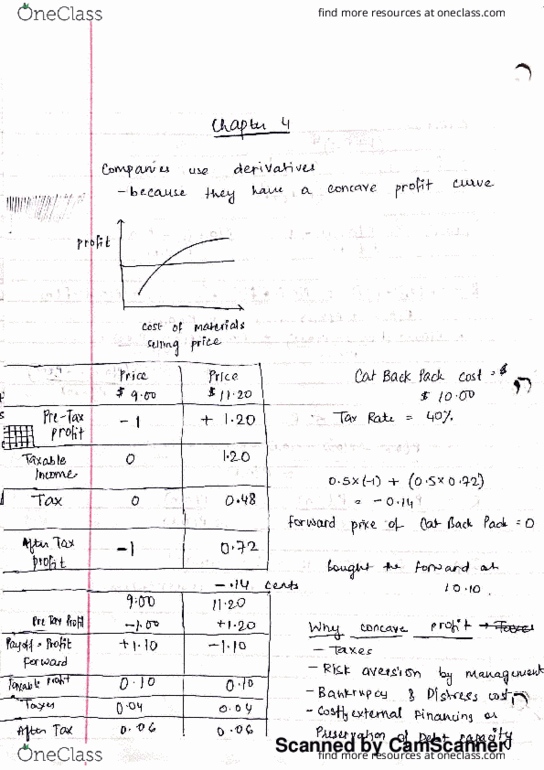 OneClass
find more resources at oneclass.com
Chapter 4
Companies use derivatives
- because they have a concave profit curve
profit
cost of materials
selling price
Price $ 9.00 Price $ 11.20
Pre-Tax profit -1 + 1.20
Taxable Income 0 1.20
Tax 0 0.48
After Tax profit -1 0.72
-.14 cents
Cat Back Pack cost = $
$ 10.00
Tax Rate = 40%
0.5x(-1) + (0.5x0.72)
= -0.14
forward price of Cat Back Pack = 0
bought the forward at
10.10.
9.00 11.20
Pre Tax Profit -1.00 +1.20
Payoff + Profit forward +1.10 -1.10
Taxable profit 0.10 0.10
Taxes 0.04 0.04
After Tax 0.06 0.06
Why concave profit → Taxes
- Taxes
- Risk aversion by management
- Bankrupcy & Distress cost
- Costly external financing or
Preservation of Debt capacity
Scanned by CamScanner
OneClass
find more resources at oneclass.com